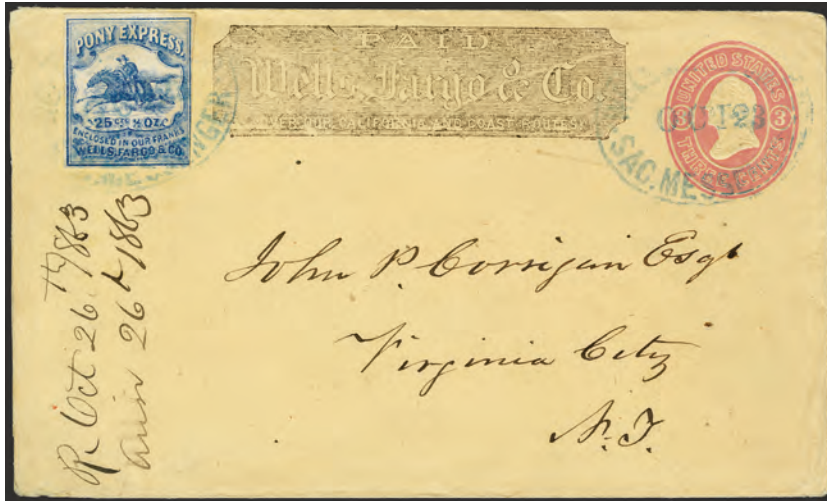 PONY EXPRESS.
25 CTS ½ OZ.
ENCLOSED IN OUR FRANKS
WELLS, FARGO & CO.
PAID
Wells, Fargo & Co.
OVER OUR CALIFORNIA AND COAST ROUTES.
UNITED STATES
3 3
THREE CENTS
OCT 23
SAC. MESSENGER
John P. Corrigan Esqr
Virginia City
N.T.
R. Oct 26th/1863
Ansr 26th 1863